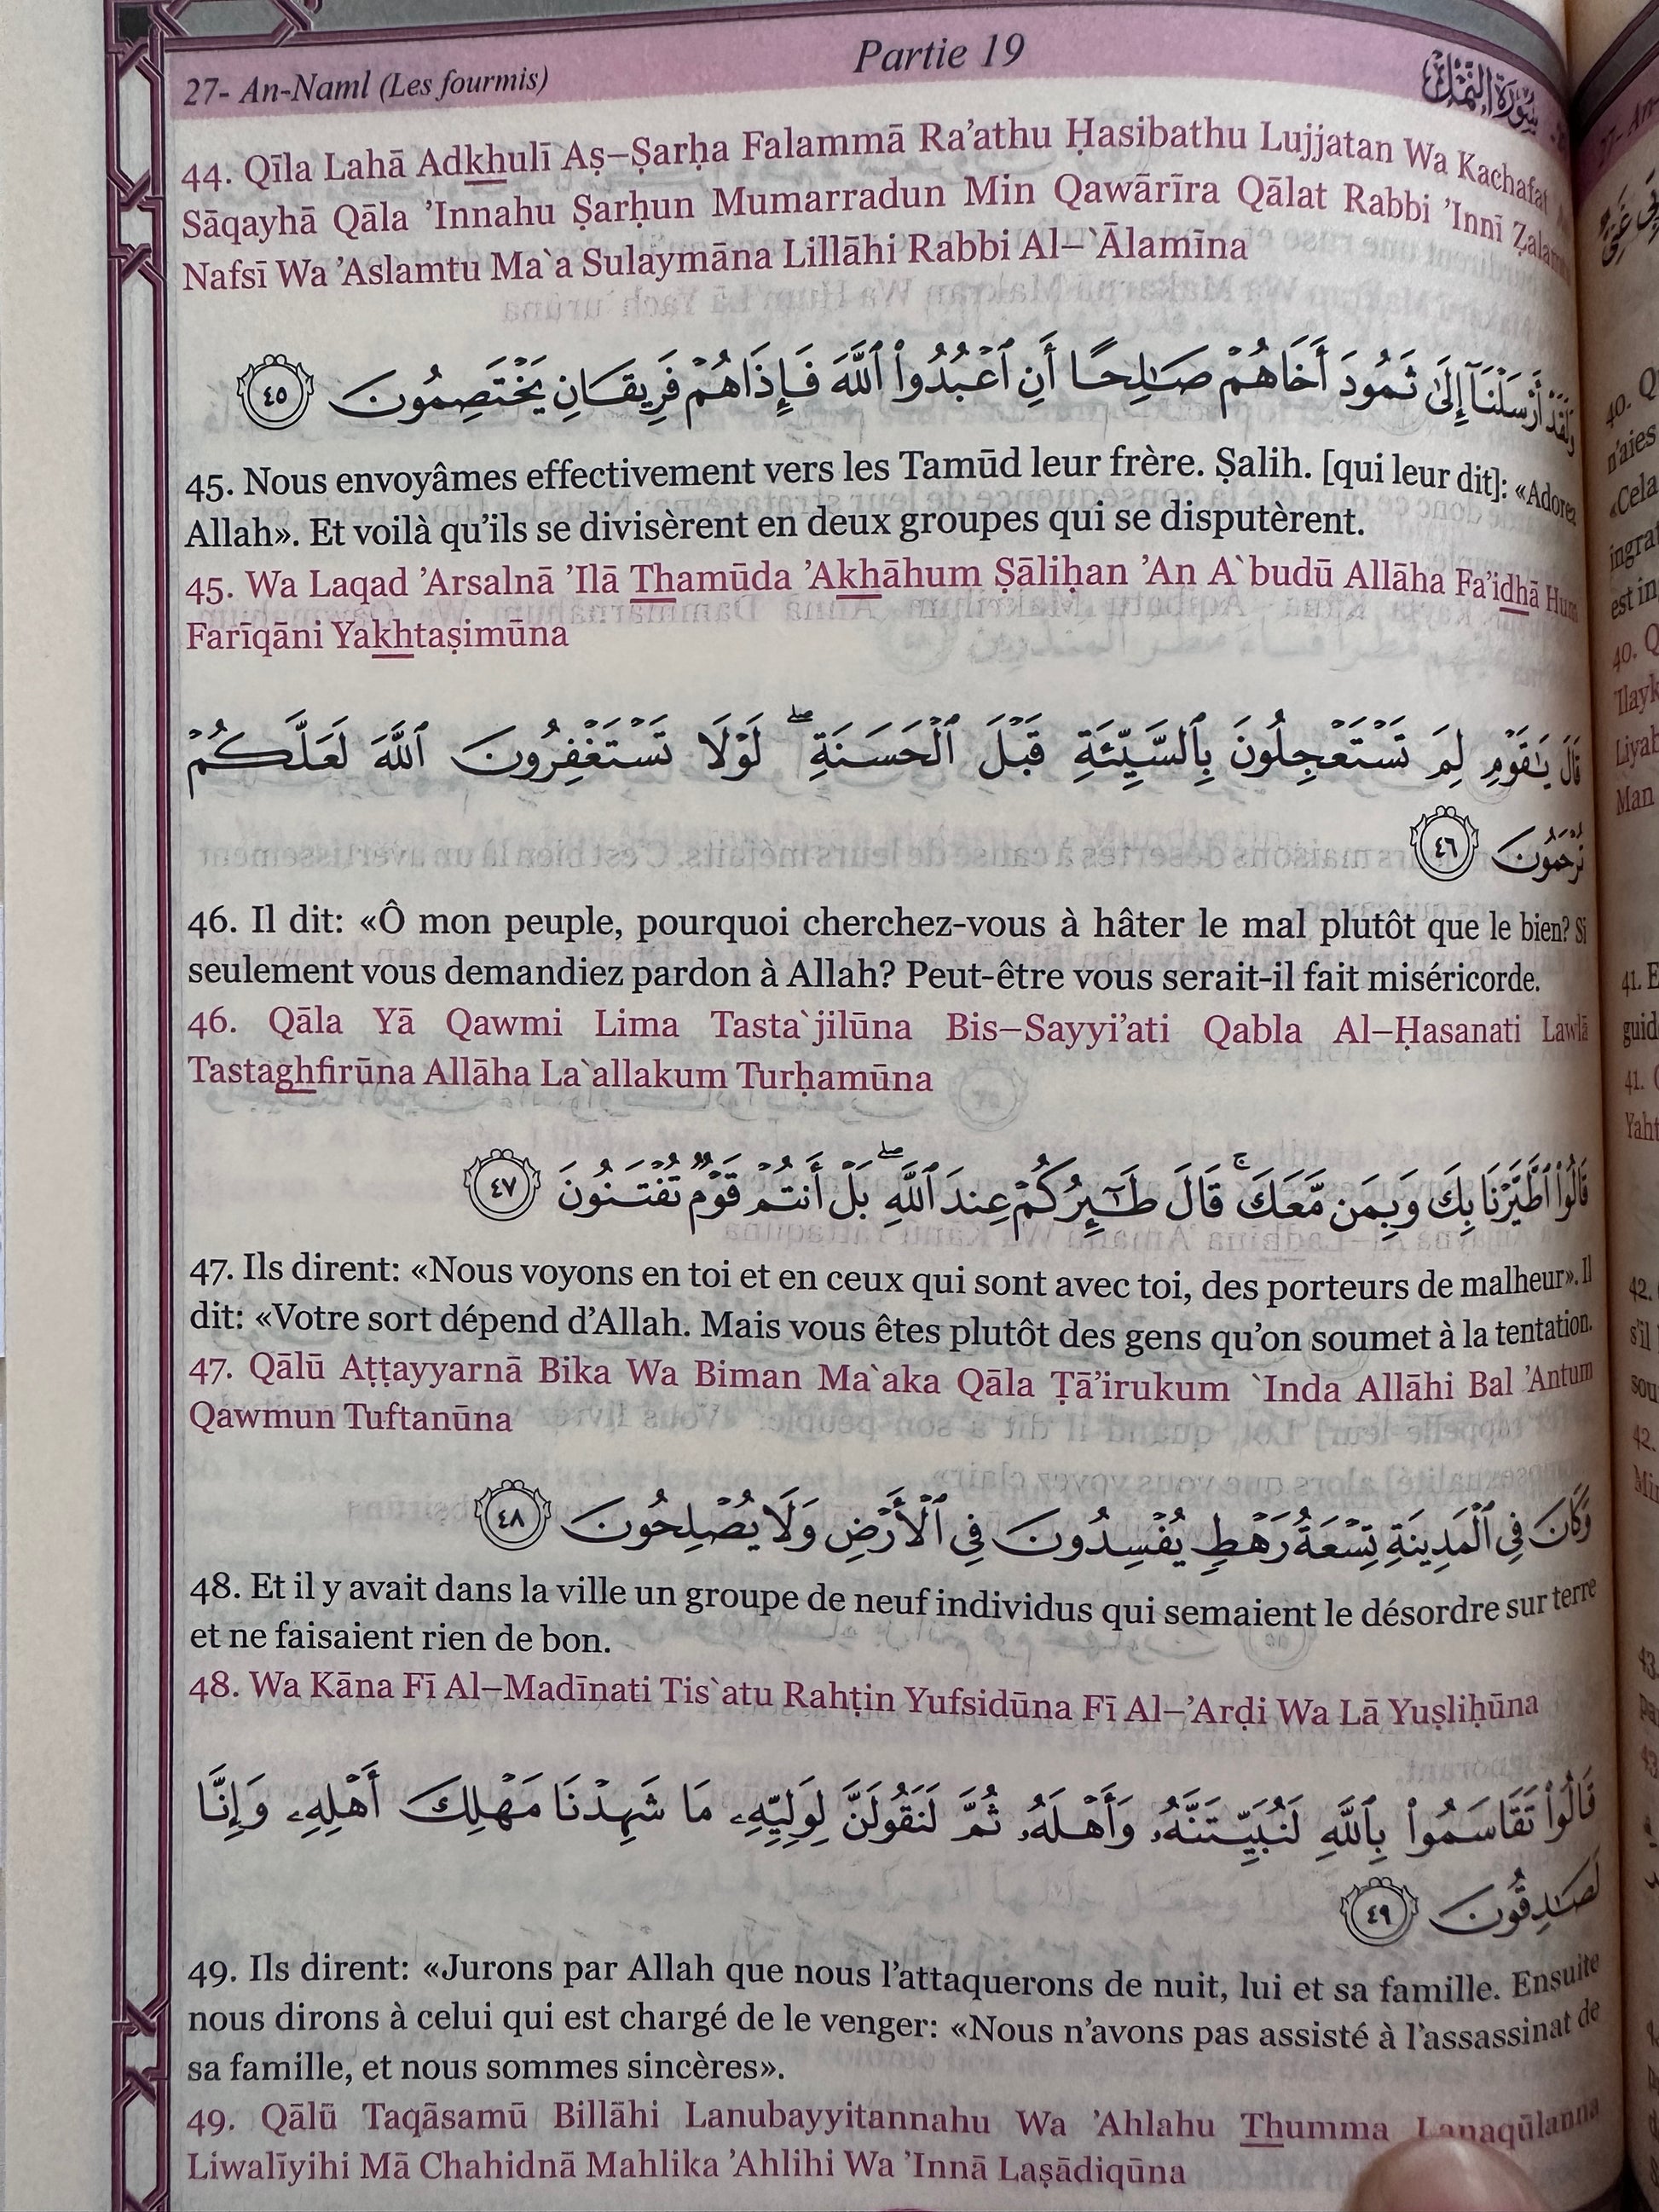 27- An-Naml (Les fourmis)
Partie 19
سورة النمل
44. Qīla Lahā Adkhulī Aṣ–Ṣarḥa Falammā Ra’athu Ḥasibathu Lujjatan Wa Kachafat
Sāqayhā Qāla ’Innahu Ṣarḥun Mumarradun Min Qawārīra Qālat Rabbi ’Innī Ẓalamtu
Nafsī Wa ’Aslamtu Ma`a Sulaymāna Lillāhi Rabbi Al–`Ālamīna
وَلَقَدْ أَرْسَلْنَآ إِلَىٰ ثَمُودَ أَخَاهُمْ صَٰلِحًا أَنِ ٱعْبُدُوا۟ ٱللَّهَ فَإِذَا هُمْ فَرِيقَانِ يَخْتَصِمُونَ ٤٥
45. Nous envoyâmes effectivement vers les Tamūd leur frère. Ṣalih. [qui leur dit]: «Adorez
Allah». Et voilà qu’ils se divisèrent en deux groupes qui se disputèrent.
45. Wa Laqad ’Arsalnā ’Ilā Thamūda ’Akhāhum Ṣāliḥan ’An A`budū Allāha Fa’idhā Hum
Farīqāni Yakhtaṣimūna
قَالَ يَٰقَوْمِ لِمَ تَسْتَعْجِلُونَ بِٱلسَّيِّئَةِ قَبْلَ ٱلْحَسَنَةِ ۖ لَوْلَا تَسْتَغْفِرُونَ ٱللَّهَ لَعَلَّكُمْ
تُرْحَمُونَ ٤٦
46. Il dit: «Ô mon peuple, pourquoi cherchez-vous à hâter le mal plutôt que le bien? Si
seulement vous demandiez pardon à Allah? Peut-être vous serait-il fait miséricorde.
46. Qāla Yā Qawmi Lima Tasta`jilūna Bis–Sayyi’ati Qabla Al–Ḥasanati Lawlā
Tastaghfirūna Allāha La`allakum Turḥamūna
قَالُوا۟ ٱطَّيَّرْنَا بِكَ وَبِمَن مَّعَكَ ۚ قَالَ طَٰٓئِرُكُمْ عِندَ ٱللَّهِ ۖ بَلْ أَنتُمْ قَوْمٌ تُفْتَنُونَ ٤٧
47. Ils dirent: «Nous voyons en toi et en ceux qui sont avec toi, des porteurs de malheur». Il
dit: «Votre sort dépend d’Allah. Mais vous êtes plutôt des gens qu’on soumet à la tentation.
47. Qālū Aṭṭayyarnā Bika Wa Biman Ma`aka Qāla Ṭā’irukum `Inda Allāhi Bal ’Antum
Qawmun Tuftanūna
وَكَانَ فِى ٱلْمَدِينَةِ تِسْعَةُ رَهْطٍ يُفْسِدُونَ فِى ٱلْأَرْضِ وَلَا يُصْلِحُونَ ٤٨
48. Et il y avait dans la ville un groupe de neuf individus qui semaient le désordre sur terre
et ne faisaient rien de bon.
48. Wa Kāna Fī Al–Madīnati Tis`atu Rahṭin Yufsidūna Fī Al–’Arḍi Wa Lā Yuṣliḥūna
قَالُوا۟ تَقَاسَمُوا۟ بِٱللَّهِ لَنُبَيِّتَنَّهُۥ وَأَهْلَهُۥ ثُمَّ لَنَقُولَنَّ لِوَلِيِّهِۦ مَا شَهِدْنَا مَهْلِكَ أَهْلِهِۦ وَإِنَّا
لَصَٰدِقُونَ ٤٩
49. Ils dirent: «Jurons par Allah que nous l’attaquerons de nuit, lui et sa famille. Ensuite
nous dirons à celui qui est chargé de le venger: «Nous n’avons pas assisté à l’assassinat de
sa famille, et nous sommes sincères».
49. Qālū Taqāsamū Billāhi Lanubayyitannahu Wa ’Ahlahu Thumma Lanaqūlanna
Liwalīyihi Mā Chahidnā Mahlika ’Ahlihi Wa ’Innā Laṣādiqūna
40. Q
n’aies
«Cela
ingrat
est in
40. Q
’Ilayk
Liyab
Man
41. E
guid
41.
Yaht
42.
s’il
sou
42.
Min
43.
43.